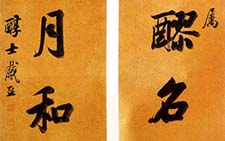 属
醪名
月和
醇士戴熙